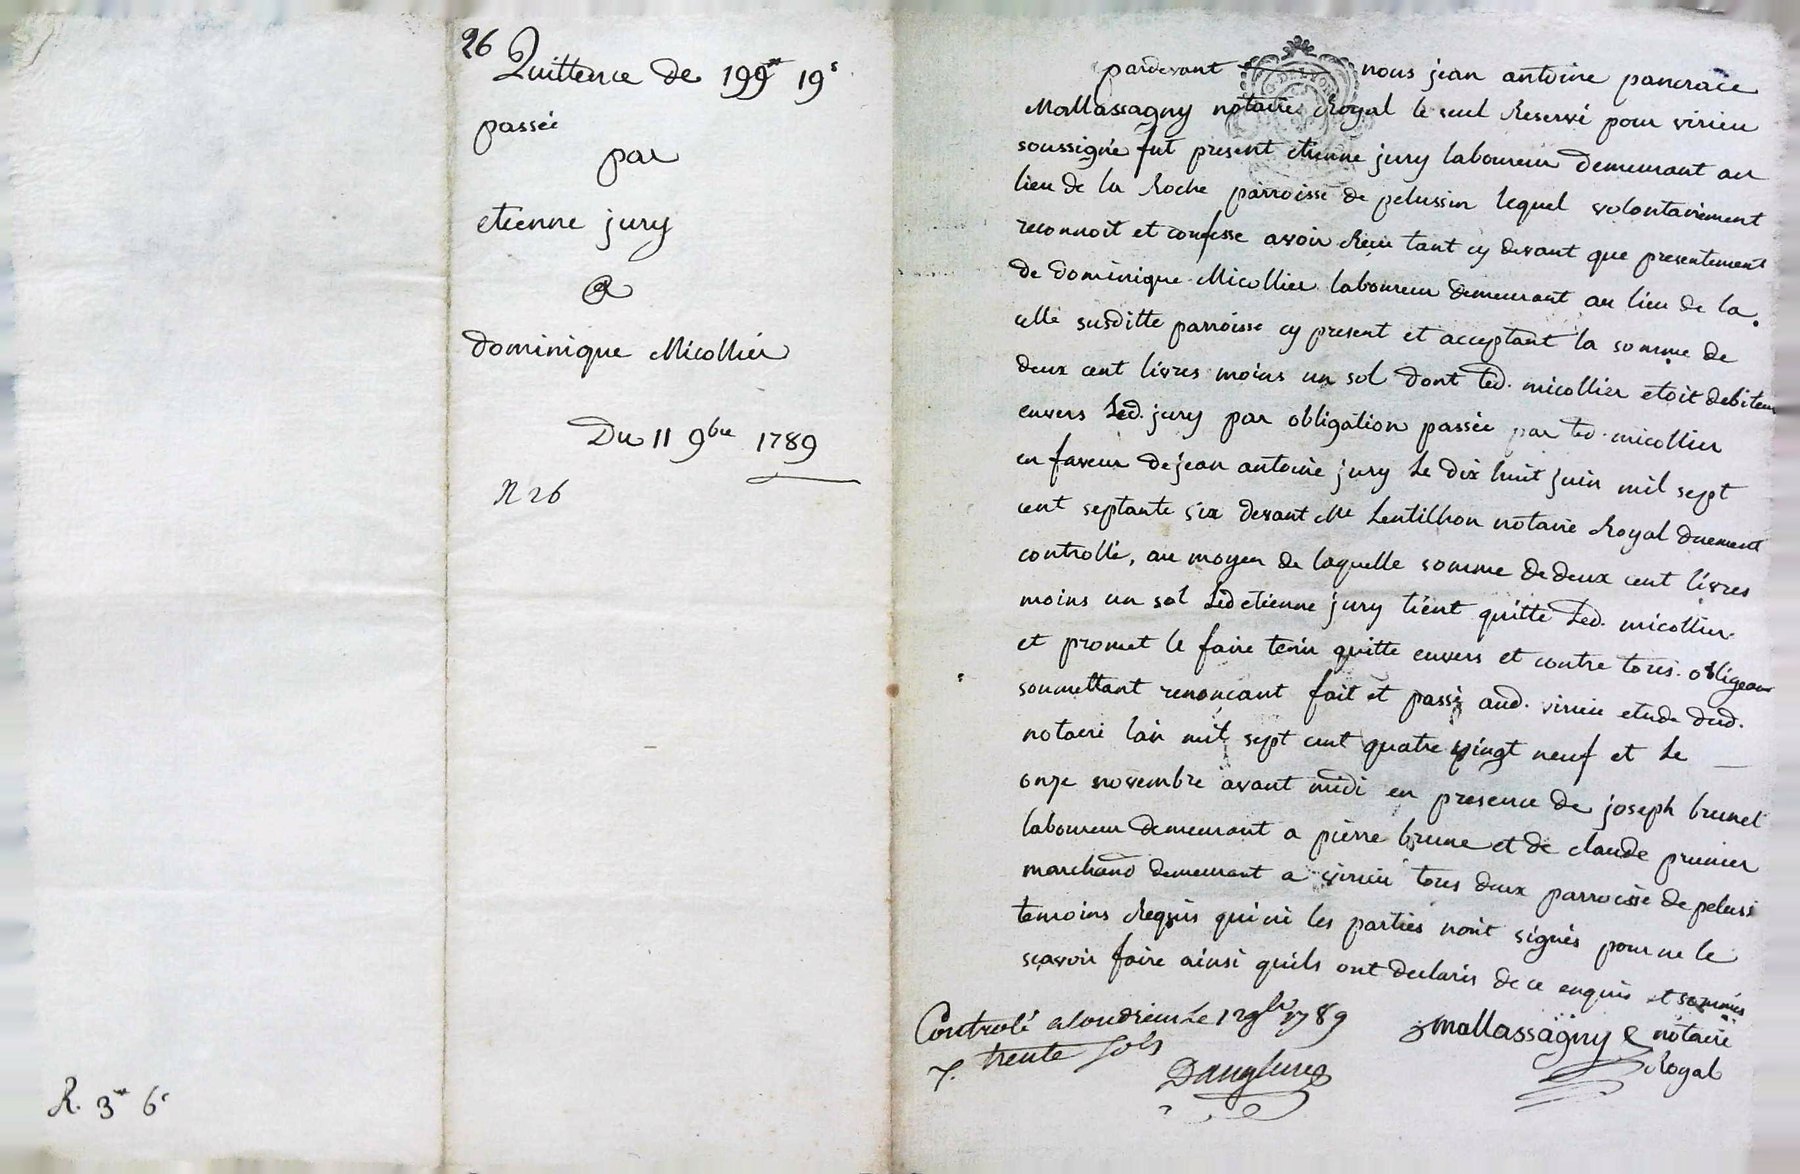 26 Quittence de 199# 19s
passée
par
etienne jury
a
dominique Micollier
Du 11 9bre 1789
N 26
R. 3# 6s
pardevant nous jean antoine pancrace
Mallassagny notaire Royal le seul Reservé pour virieu
soussigné fut present etienne jury laboureur demeurant au
lieu de la Roche parroisse de pelussin lequel volontairement
reconnoit et confesse avoir Reçu tant cy devant que presentement
de dominique Micollier laboureur demeurant au lieu de la
celle susditte parroisse cy present et acceptant la somme de
deux cent livres moins un sol dont led. micollier etoit debiteur
envers Led. jury par obligation passée par led. micollier
en faveur de jean antoine jury Le dix huit juin mil sept
cent septante six devant Me Lentillon notaire Royal duement
controllé, au moyen de laquelle somme de deux cent livres
moins un sol Led etienne jury tient quitte Led. micollier
et promet le faire tenir quitte envers et contre tous. obligeant
soumettant renonçant fait et passé aud. virieu etude dud.
notaire lan mil sept cent quatre vingt neuf et Le
onze novembre avant midi en presence de joseph brunel
laboureur demeurant a pierre brune et de claude prunier
marchand demeurant a virieu tous deux parroisse de peluss
temoins Requis qui ni les parties nont signés pour ne le
sçavoir faire ainsi quils ont declarés de ce enquis et sommés
Mallassagny notaire
Royal
Controlé a Condrieu Le 12 9bre 1789
r. trente sols